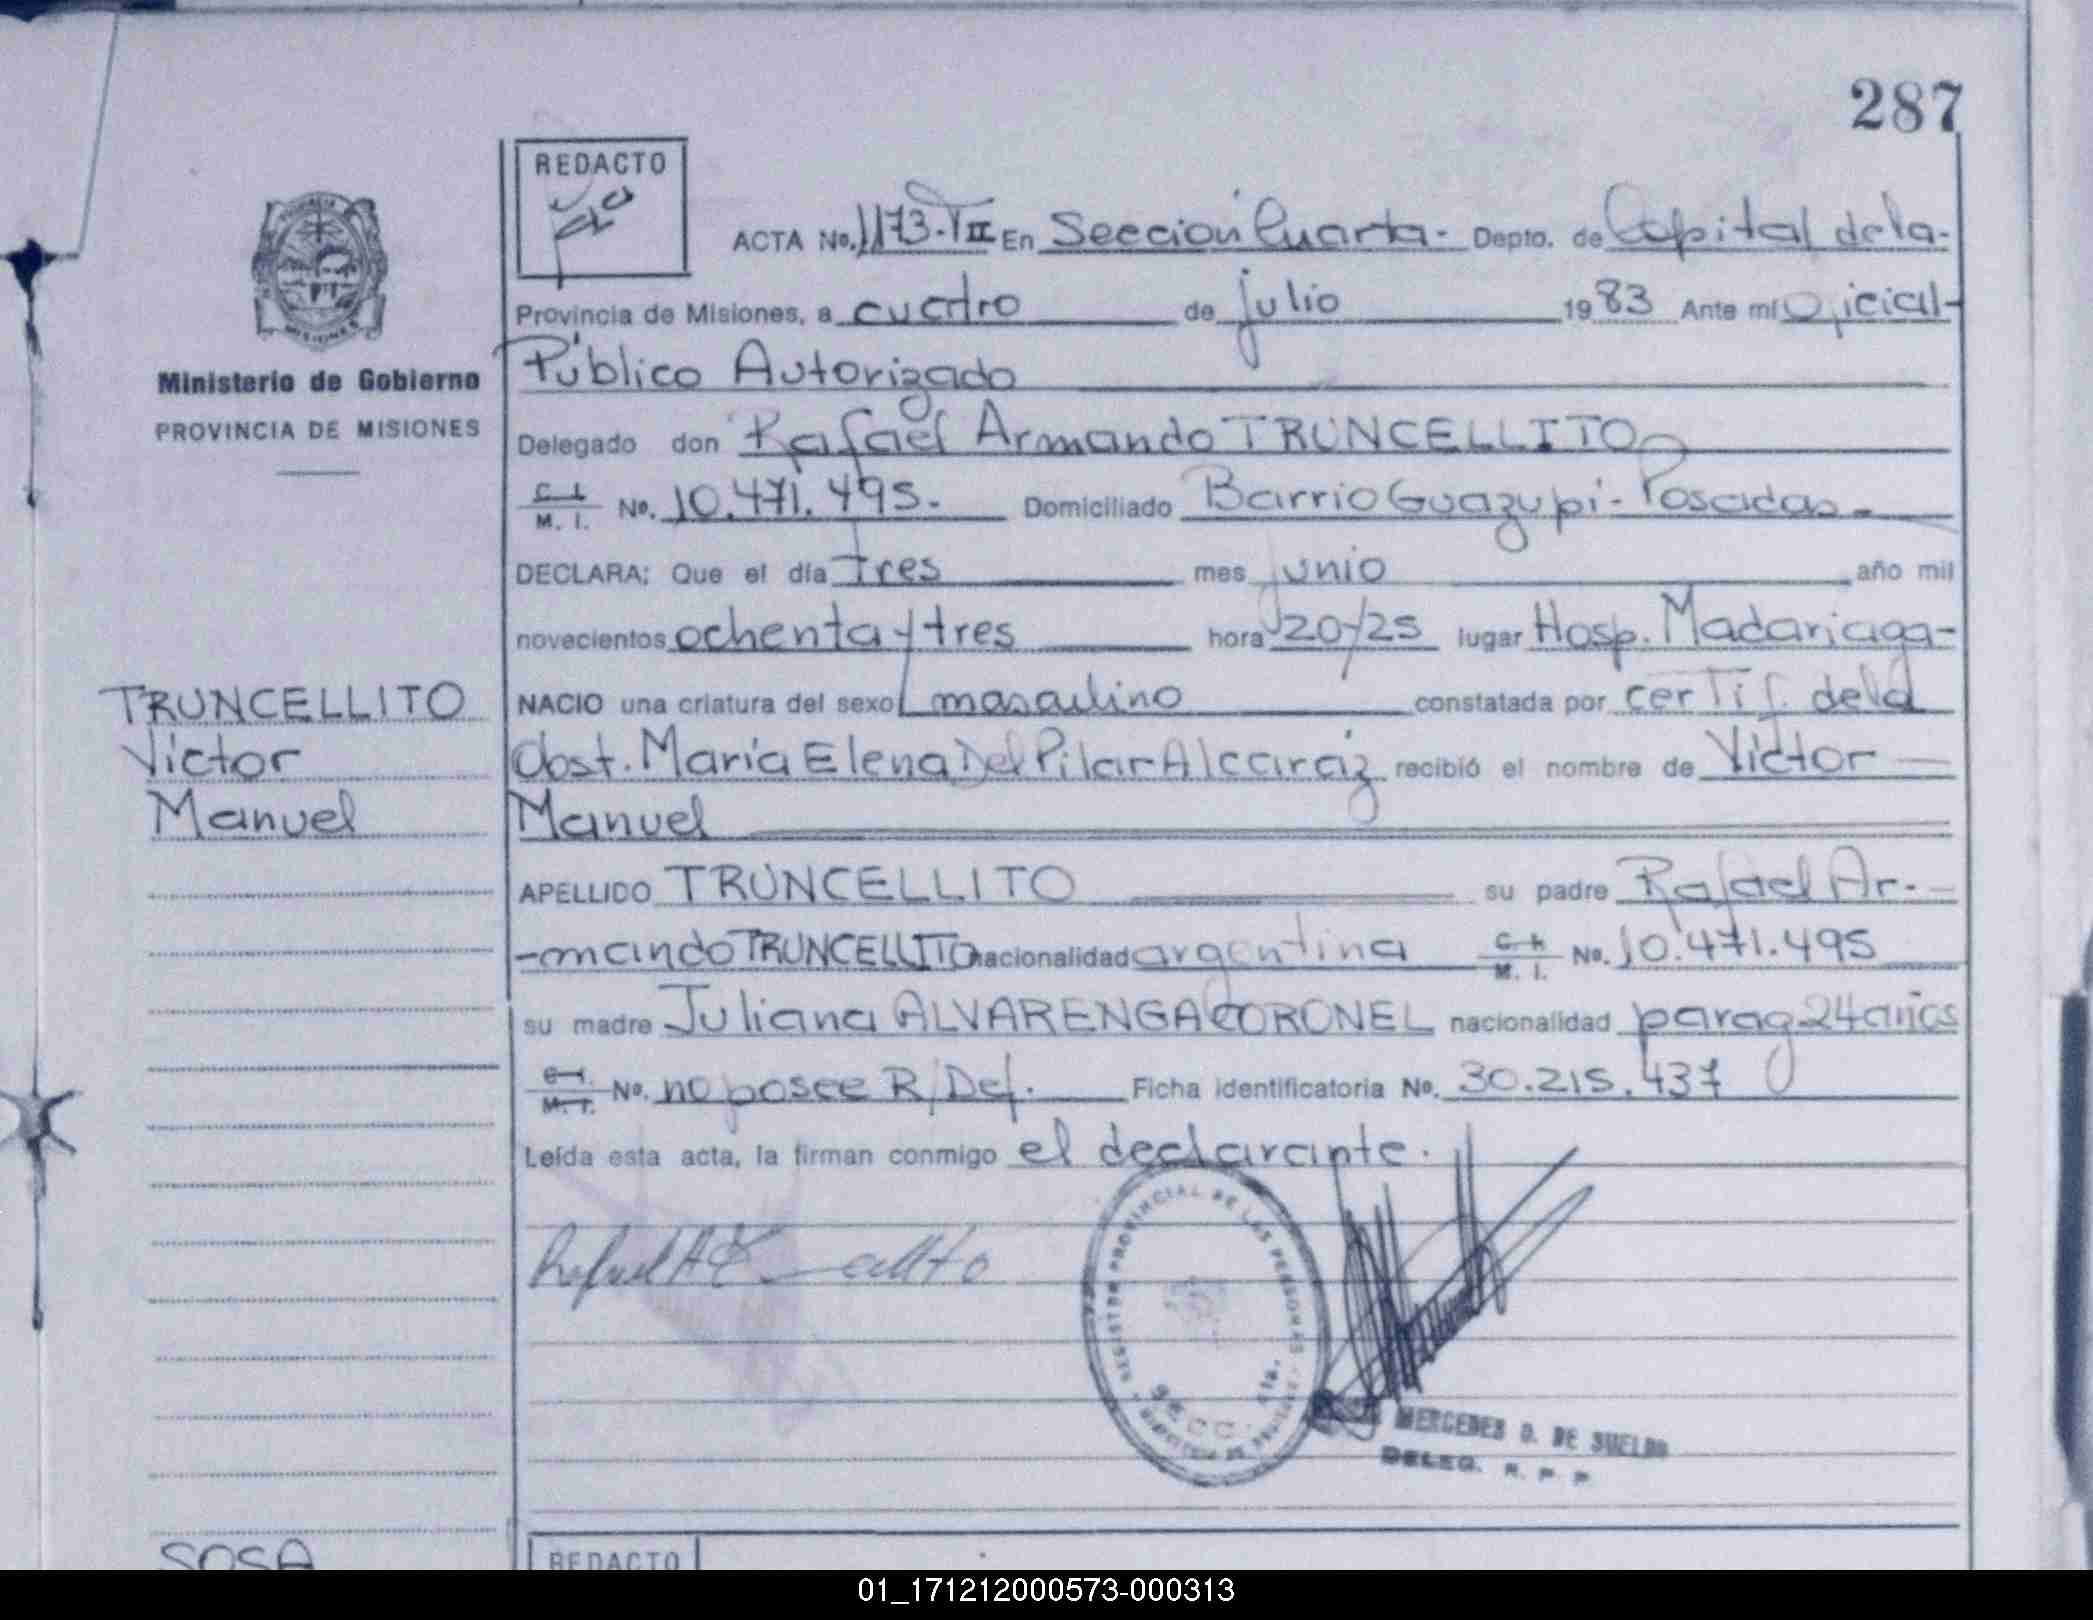 287
REDACTO
ACTA No. 1173-TII En Sección Cuarta- Depto. de Capital de la-
Provincia de Misiones, a cuatro de julio 1983 Ante mí Oficial-
Público Autorizado
Delegado don Rafael Armando TRUNCELLITO
C. I. M. I. No. 10.471.495.- Domiciliado Barrio Guazupi- Posadas-
DECLARA: Que el día tres mes junio año mil
novecientos ochenta y tres hora 20/25 lugar Hosp. Madariaga-
NACIO una criatura del sexo masculino constatada por certif. de la
obst. María Elena Del Pilar Alcaraz recibió el nombre de Victor
Manuel
APELLIDO TRUNCELLITO su padre Rafael Ar-
-mando TRUNCELLITO nacionalidad argentina C. I. M. I. No. 10.471.495
su madre Juliana ALVARENGA CORONEL nacionalidad parag 24 años
C. I. M. I. No. no posee R/Def. Ficha identificatoria No. 30.215.437
Leída esta acta, la firman conmigo el declarante.
REGISTRO PROVINCIAL DE LAS PERSONAS
SECC. 4ta.
MERCEDES D. DE SUELDO
DELEG. R. P. P.
MISIONES
Ministerio de Gobierno
PROVINCIA DE MISIONES
TRUNCELLITO
Victor
Manuel
SOSA
REDACTO
01_171212000573-000313